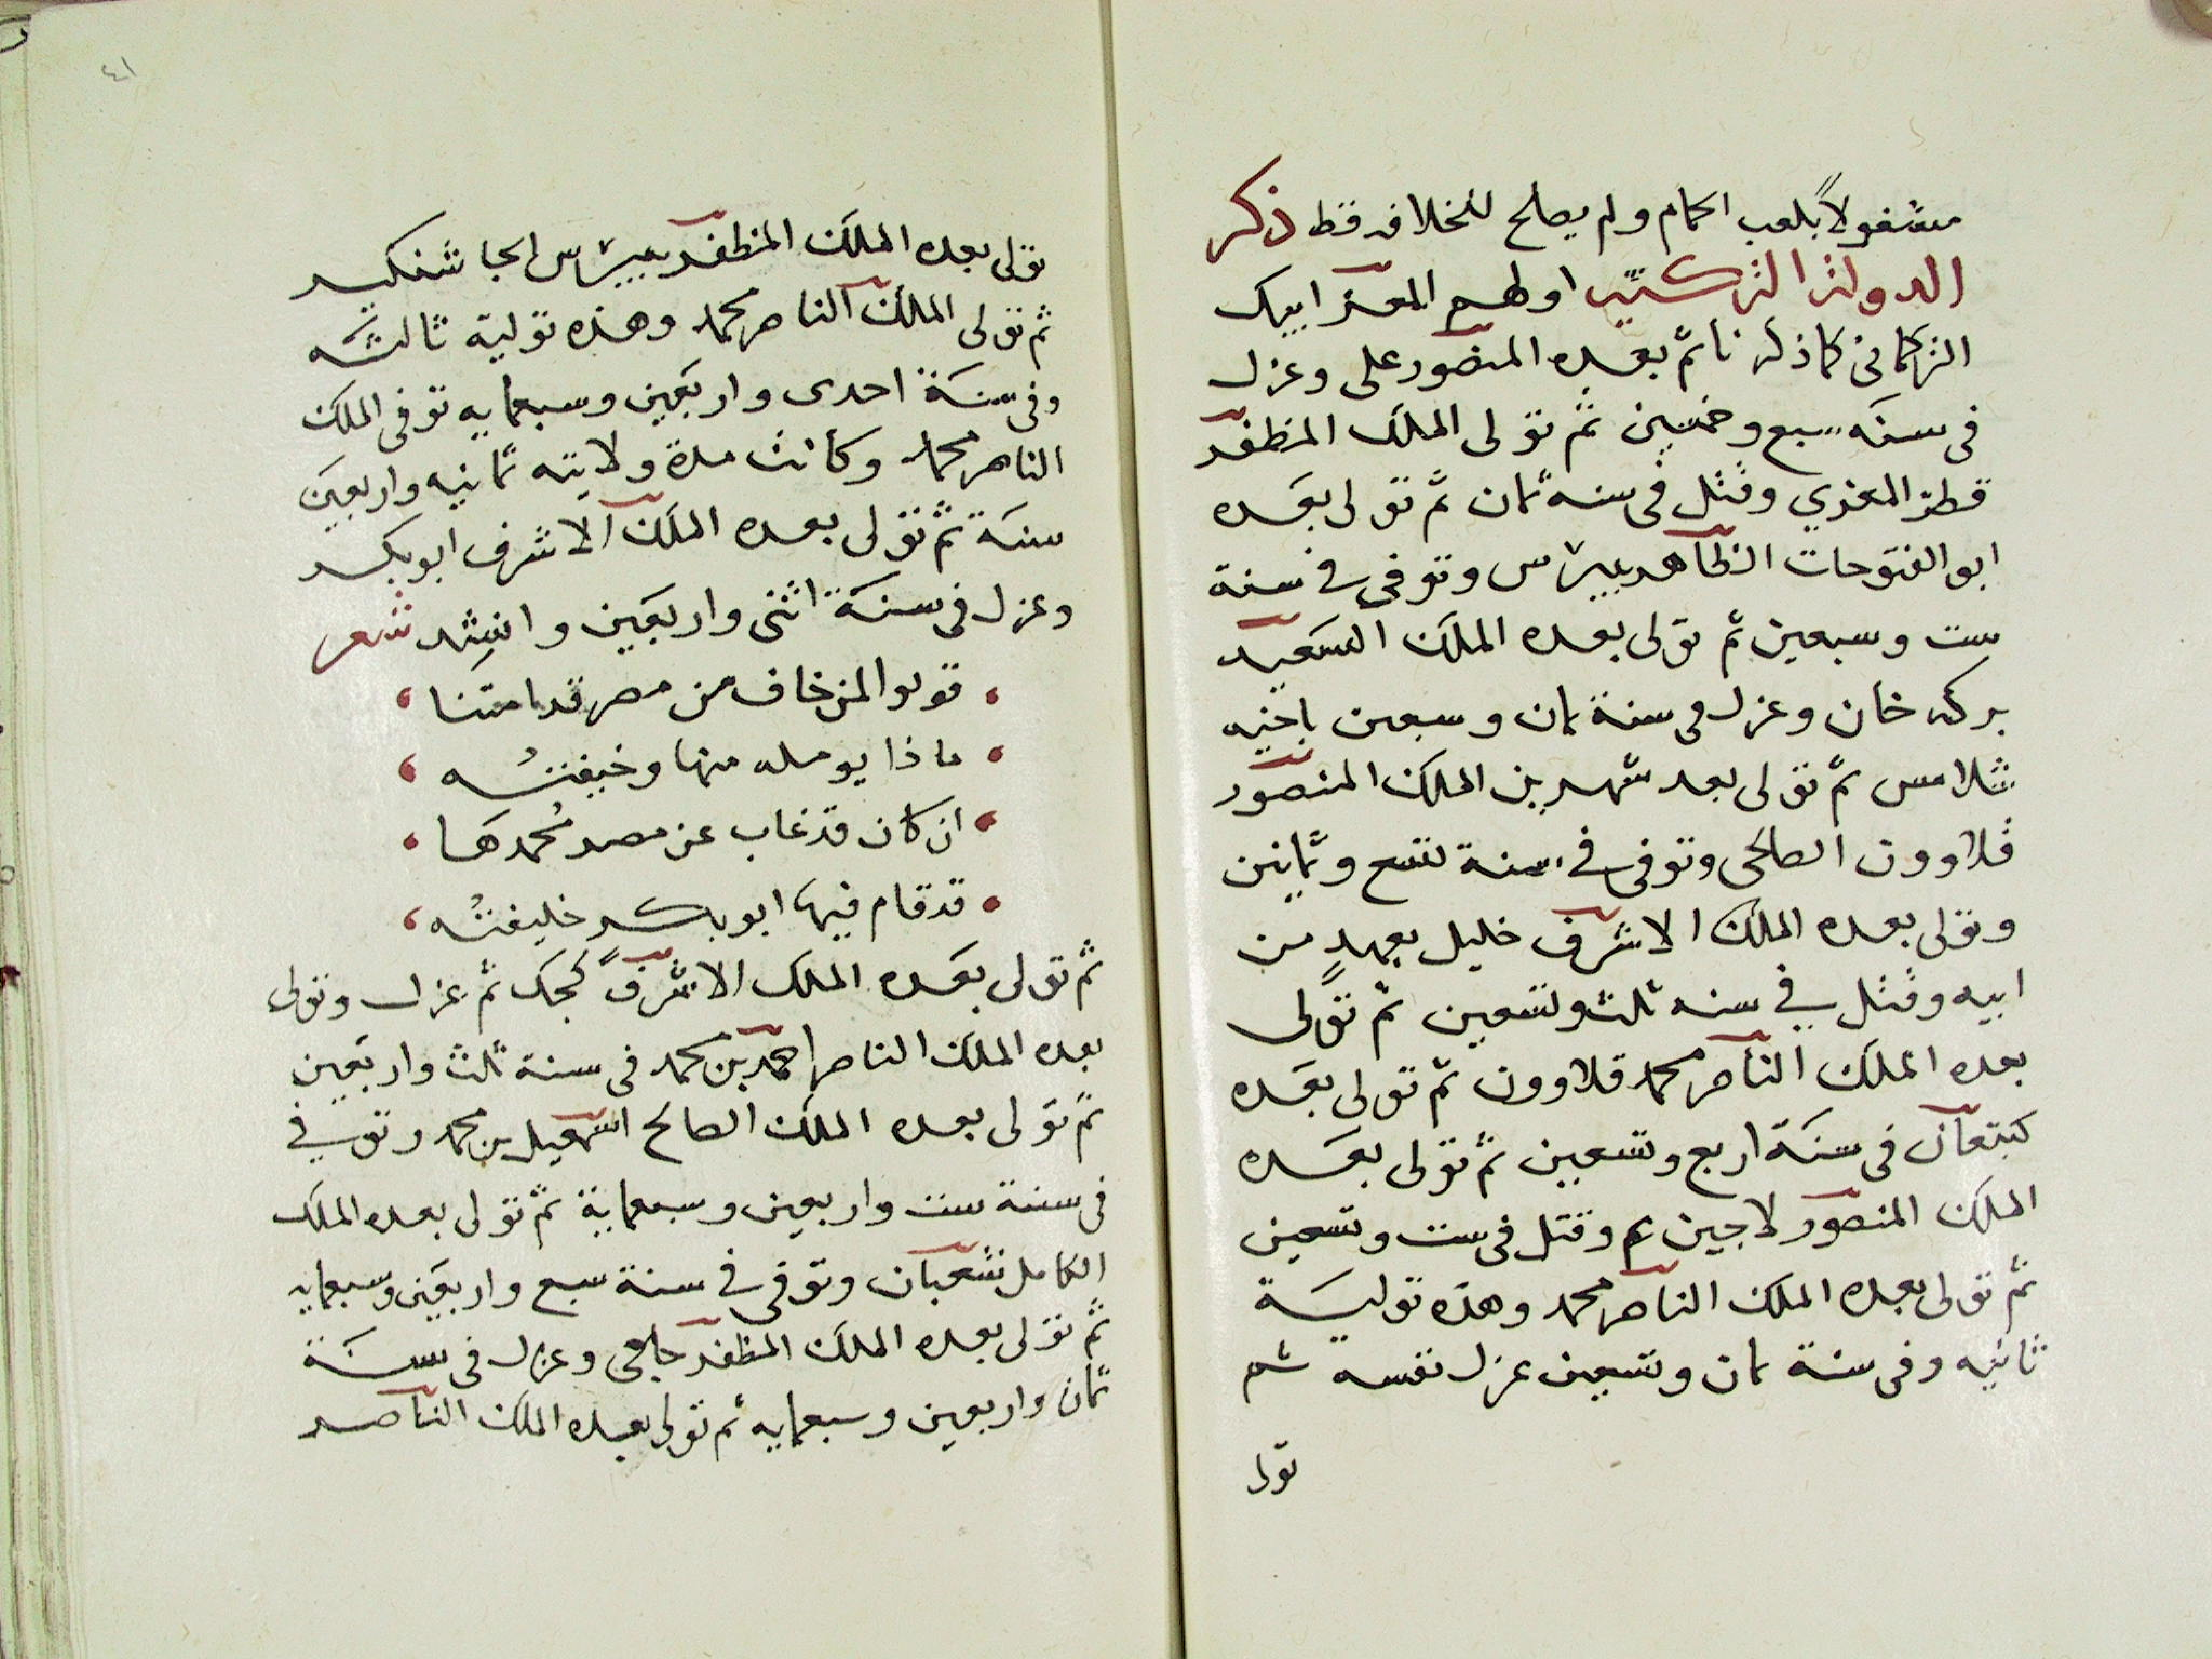 مشغولاً بلعب الحمام ولم يصلح للخلافه قط ذكر
الدولة التركية اولهم المعز ايبك
التركمانى كما ذكرنا ثم بعده المنصور على وعزل
فى سنه سبع وخمسين ثم تولى الملك المظفر
قطز المعزي وقتل فى سنه ثمان ثم تولى بعده
ابو الفتوحات الظاهر بيبرس وتوفى فى سنة
ست وسبعين ثم تولى بعده الملك السعيد
بركه خان وعزل فى سنة ثمان وسبعين باخيه
شلامس ثم تولى بعد شهرين الملك المنصور
قلاوون الصالحى وتوفى فى سنة تسع وثمانين
وتولى بعده الملك الاشرف خليل بعهد من
ابيه وقتل في سنه ثلث وتسعين ثم تولى
بعده الملك الناصر محمد قلاوون ثم تولى بعده
كتبغان فى سنة اربع وتسعين ثم تولى بعده
الملك المنصور لاجين وقتل فى ست وتسعين
ثم تولى بعده الملك الناصر محمد وهذه تولية
ثانيه وفى سنة ثمان وتسعين عزل نفسه ثم
تولى
٤١
تولى بعده الملك المظفر بيبرس الجاشنكير
ثم تولى الملك الناصر محمد وهذه تولية ثالثه
وفى سنة احدى واربعين وسبعمايه توفى الملك
الناصر محمد وكانت مدة ولايته ثمانيه واربعين
سنة ثم تولى بعده الملك الاشرف ابو بكر
وعزل فى سنة اثنى واربعين وانشد شعر
قولوا لمن خاف من مصر قد امتنا
ماذا يومله منها وخيفته
ان كان قد غاب عن مصر محمدها
قد قام فيها ابو بكر خليفته
ثم تولى بعده الملك الاشرف كجك ثم عزل وتولى
بعده الملك الناصر احمد بن محمد فى سنة ثلث واربعين
ثم تولى بعده الملك الصالح اسمعيل بن محمد وتوفي
فى سنة ست واربعين وسبعماية ثم تولى بعده الملك
الكامل شعبان وتوفى فى سنة سبع واربعين وسبعمايه
ثم تولى بعده الملك المظفر حاجى وعزل فى سنة
ثمان واربعين وسبعمايه ثم تولى بعده الملك الناصر